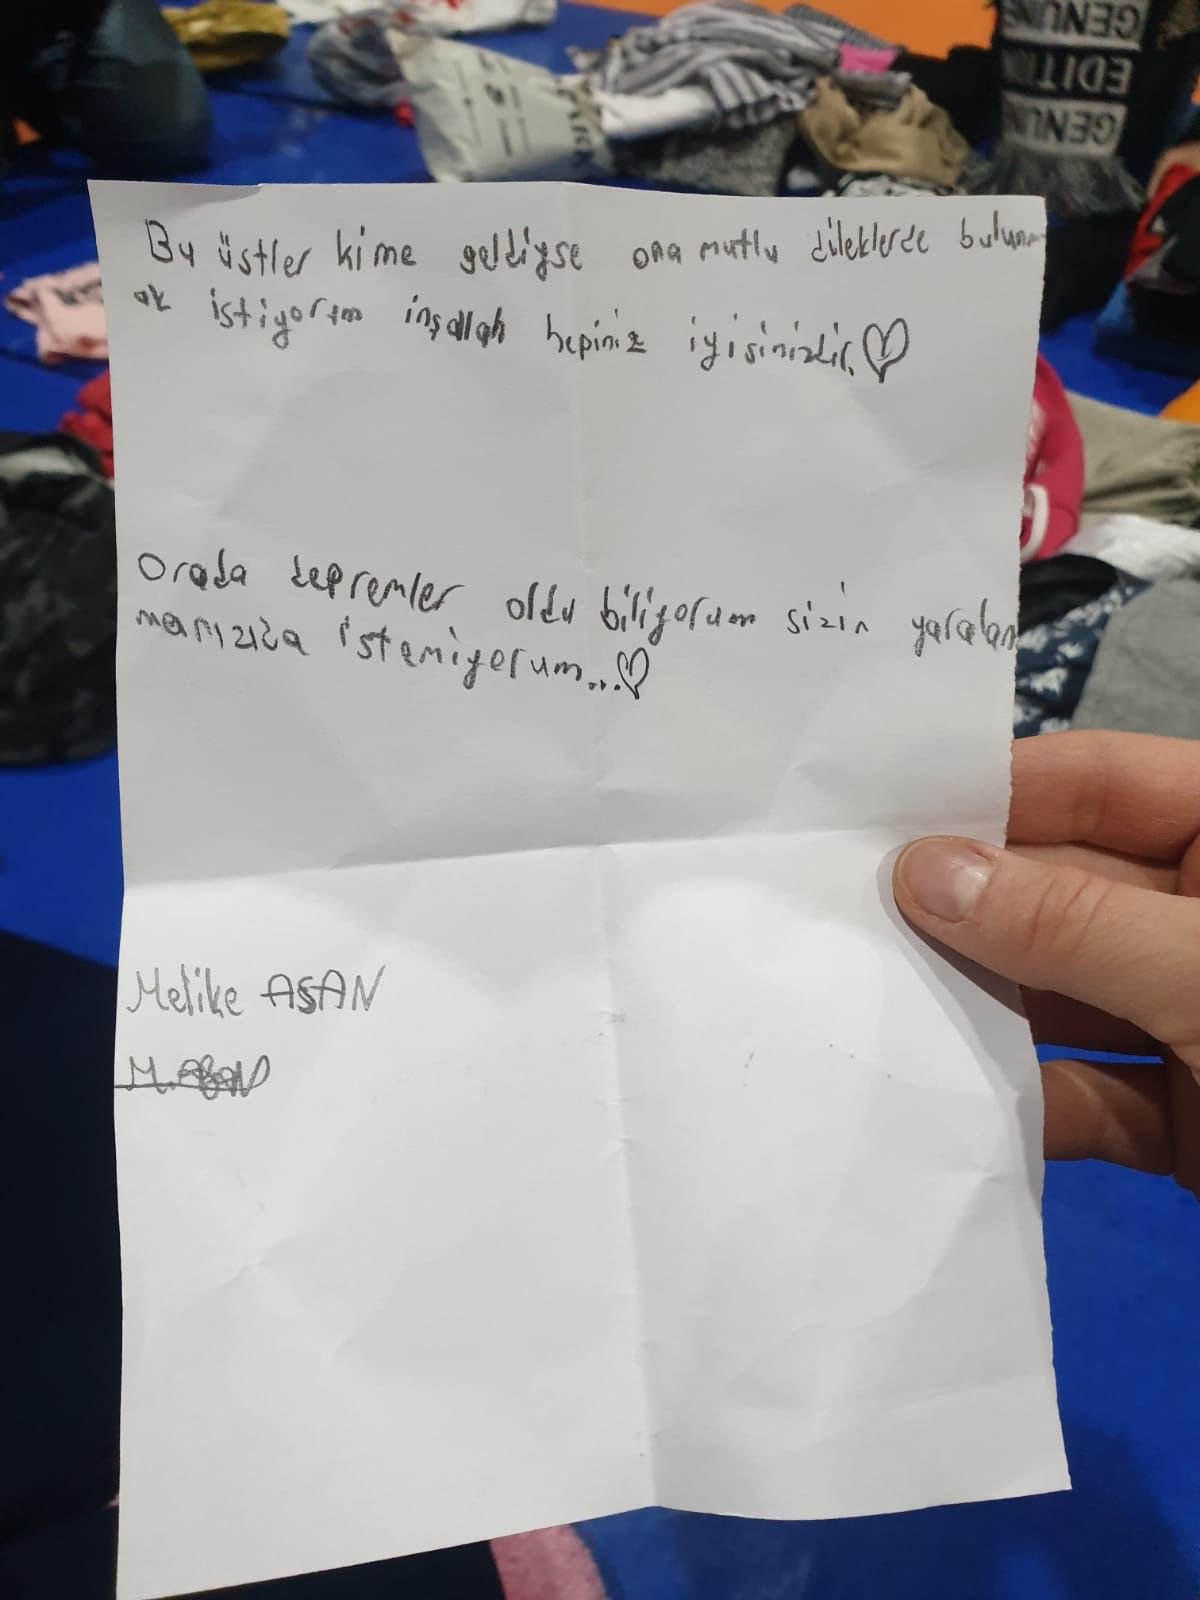 GENUINE
EDITION
GENUINE
Bu üstler kime geldiyse ona mutlu dileklerde bulunm
ak istiyorum inşallah hepiniz iyisinizdir. ♡
Orada depremler oldu biliyorum sizin yaralan
manızıda istemiyorum... ♡
Melike AŞAN